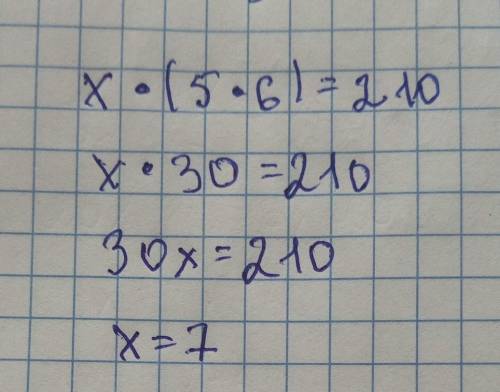 x · (5 · 6) = 210
x · 30 = 210
30x = 210
x = 7